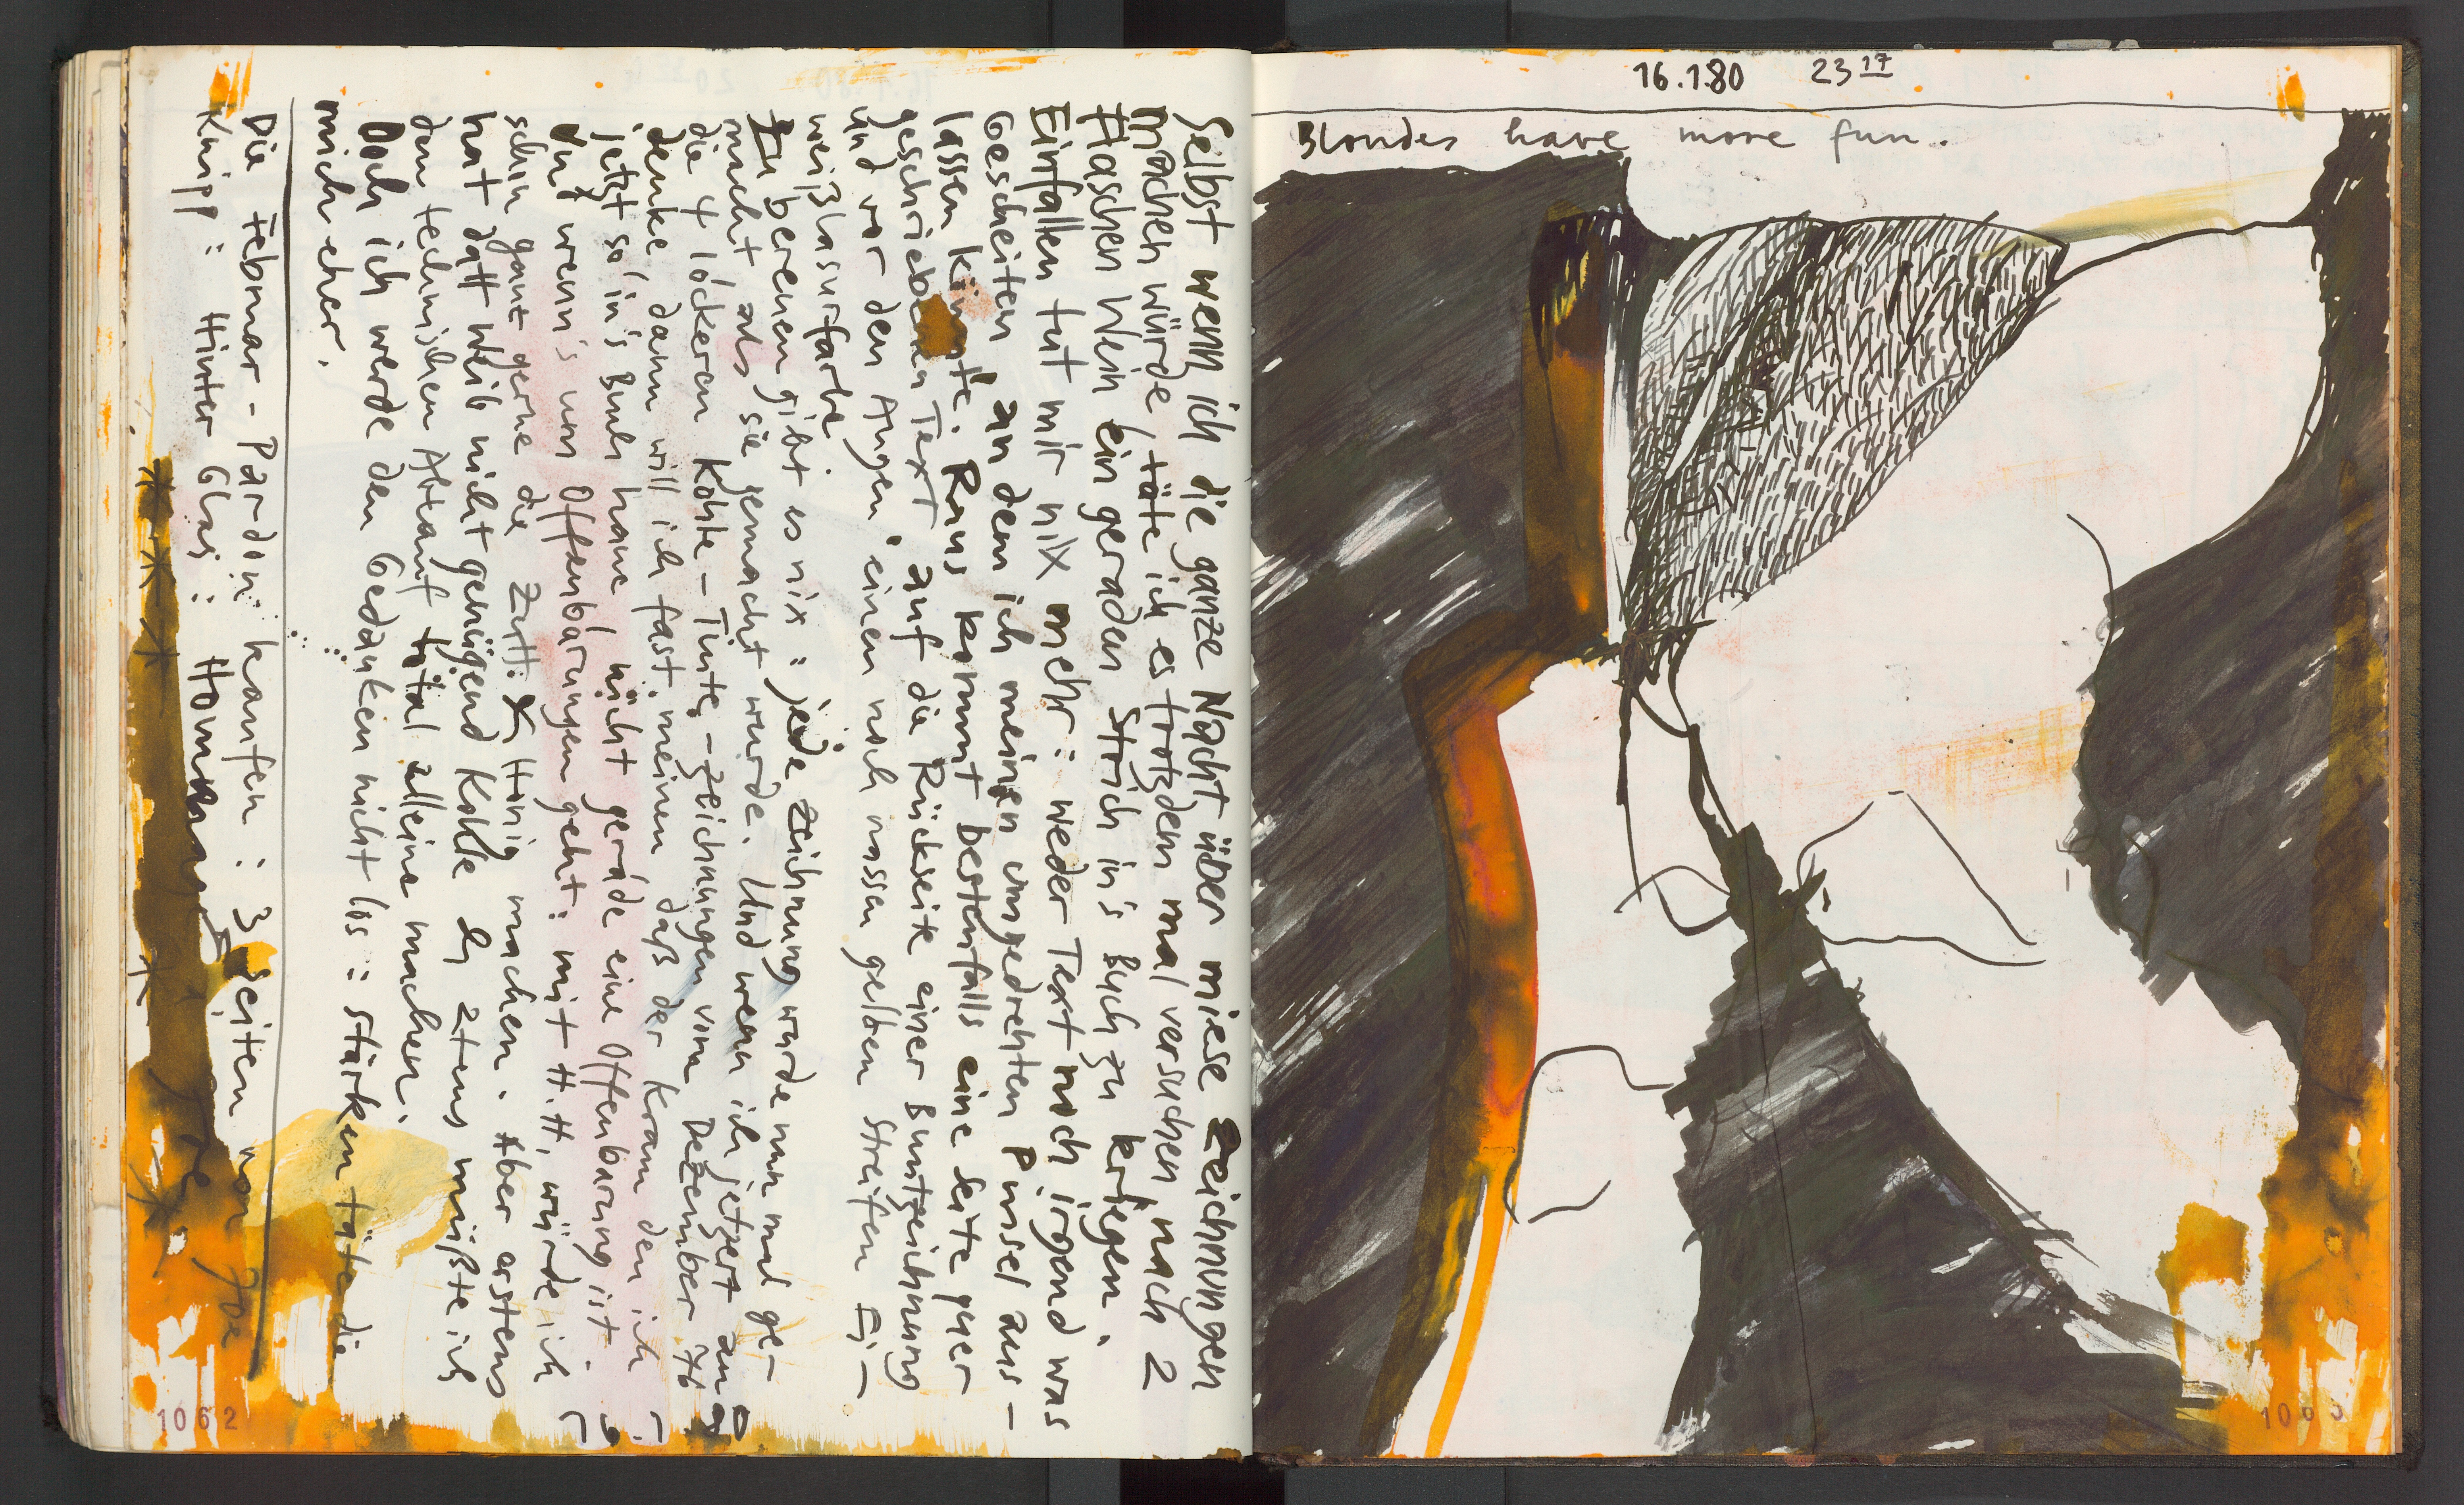 Selbst wenn ich die ganze Nacht über miese Zeichnungen
machen würde, täte ich es trotzdem mal versuchen, nach 2
Flaschen Wein ein geraden Strich in's Buch zu kriegen.
Einfallen tut mir nix mehr: weder Text noch irgend was
Gescheiten an dem ich meinen umgedrehten Pinsel aus-
lassen könnte. Raus kommt bestenfalls eine Seite quer
geschrieben Text, auf die Rückseite einer Buntzeichnung
und vor den Augen, einen noch nassen gelben Streifen Ei-
weißlasurfarbe.
Zu bereuen gibt es nix: jede Zeichnung wurde nun mal ge-
macht als sie gemacht wurde. Und wenn ich jetzert an
die 4 lockeren Kohle-Tinte-Zeichnungen vom Dezember 76
denke, dann will ich fast meinen daß der Kram den ich
jetzt so in's Buch haue nicht gerade eine Offenbarung ist.
Und wenn's um Offenbarungen geht: mit H.H. würde ich
schon ganz gerne die Honig machen. Aber erstens
hat datt Weib nicht genügend Kohle & 2tens müßte ich
den technischen Ablauf total alleine machen.
Doch ich werde den Gedanken nicht los: stärken täte die
mich eher.
Die Februar-Pardon kaufen: 3 Seiten von
Knipp: Hinter Glas: Hommage
1062
16.1.80 23 17
Blondes have more fun.